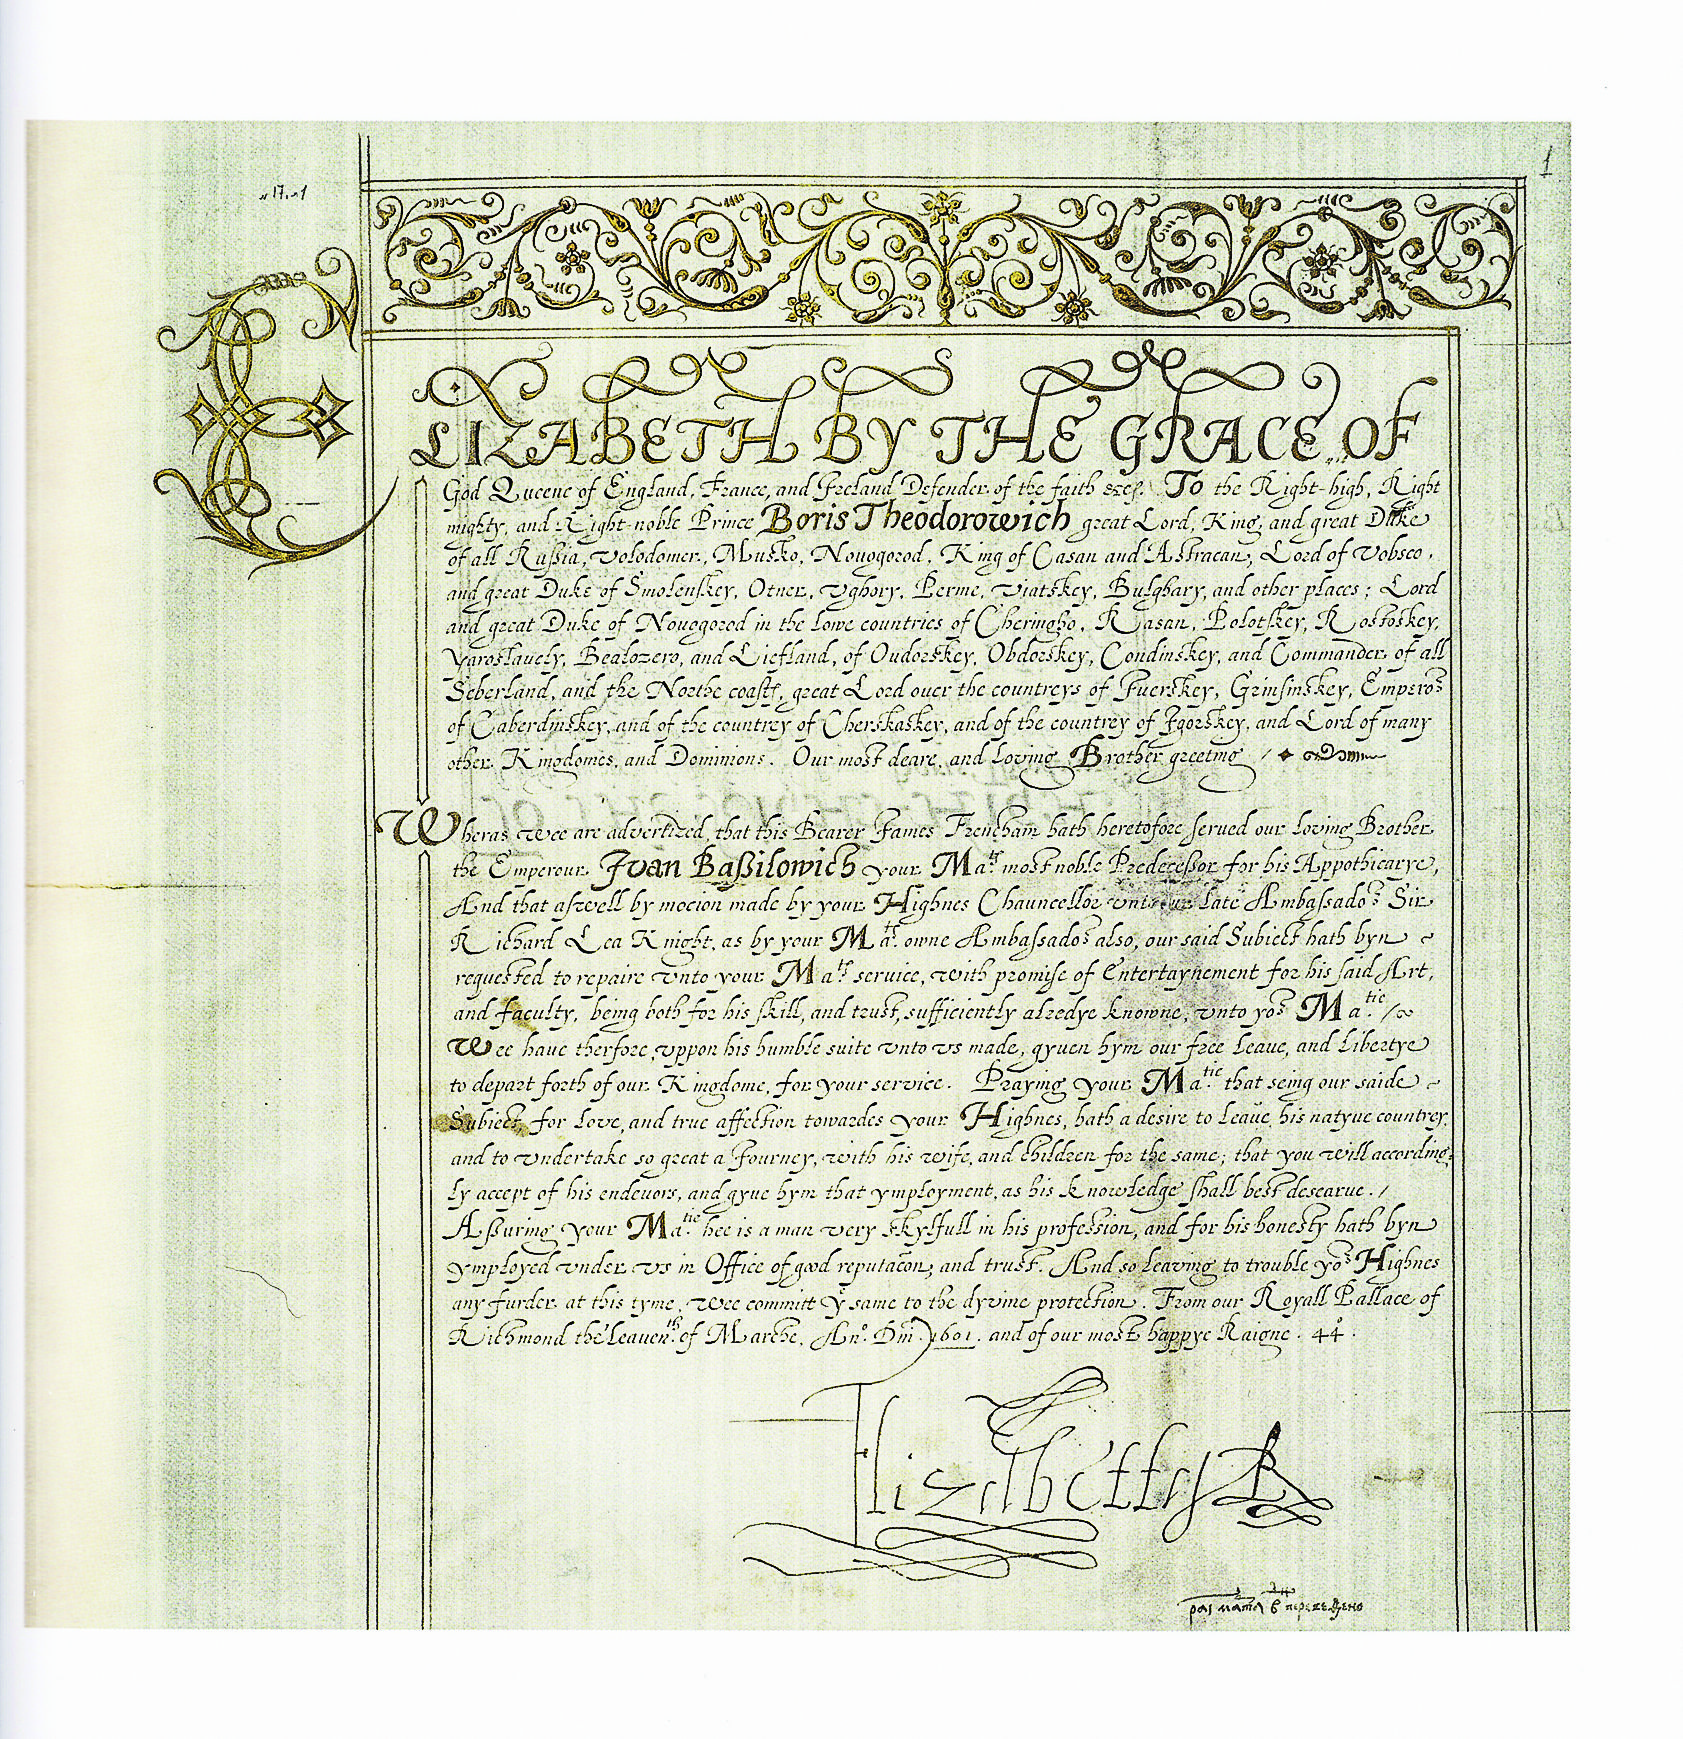 1
ELIZABETH BY THE GRACE OF
God Queene of England, France, and Ireland Defender of the faith &c. To the Right-high, Right
mighty, and Right-noble Prince Boris Theodorowich great Lord, King, and great Duke
of all Rußia, Volodomer, Musko, Novogorod, King of Casan and Astracan, Lord of Vobsco,
and great Duke of Smolenskey, Otner, Vghory, Perme, Viatskey, Bulghary, and other places; Lord
and great Duke of Novogorod in the lowe countries of Cheringho, Rasan, Polotskey, Rostoskey,
Yaroslauely, Bealozero, and Liefland, of Oudorskey, Obdorskey, Condinskey, and Commander of all
Seberland, and the Northe coastes, great Lord over the countreys of Iuerskey, Grinsinskey, Emperor
of Caberdinskey, and of the countrey of Cherskaskey, and of the countrey of Igorskey, and Lord of many
other Kingdomes, and Dominions. Our most deare, and loving Brother greeting
Wheras wee are advertized, that this Bearer James Frencham hath heretofore served our loving Brother
the Emperour Ivan Baßilowich your Ma.ts most noble Predeceßor for his Appothicarye,
And that aswell by mocion made by your Highnes Chauncellor vnto our late Ambassador Sir
Richard Lea Knight, as by your Ma.ts owne Ambassador also, our said Subiect hath byn
requested to repaire vnto your Ma.ts service, with promise of entertaynement for his said Art,
and faculty, being both for his skill, and trust, sufficiently alredye knowne, vnto yor Ma.tie /
Wee haue therfore vppon his humble suite vnto vs made, gyuen hym our free leaue, and libertye
to depart forth of our Kingdome, for your service. Praying your Ma.tie that seing our saide
Subiect, for love, and true affection towardes your Highnes, hath a desire to leaue his natyue countrey,
and to vndertake so great a Journey, with his wife, and children for the same; that you will according=
ly accept of his endevors, and gyue hym that ymployment, as his knowledge shall best desearue. /
Aßuring your Ma.tie hee is a man very skylfull in his profession, and for his honesty hath byn
ymployed vnder vs in Office of good reputacon, and trust. And so leaving to trouble yor Highnes
any furder at this tyme, wee committ ye same to the dyvine protection. From our Royall Pallace of
Richmond the leauenth of Marche. Ano. Dm̄ 1601. and of our most happye Raigne. 44o.
Elizabeth R